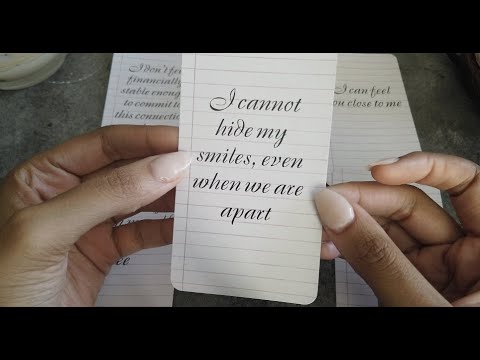 I don't fe
financially
stable enoug
to commit to
this connectio
I cannot
hide my
smiles, even
when we are
apart
I can feel
ou close to me